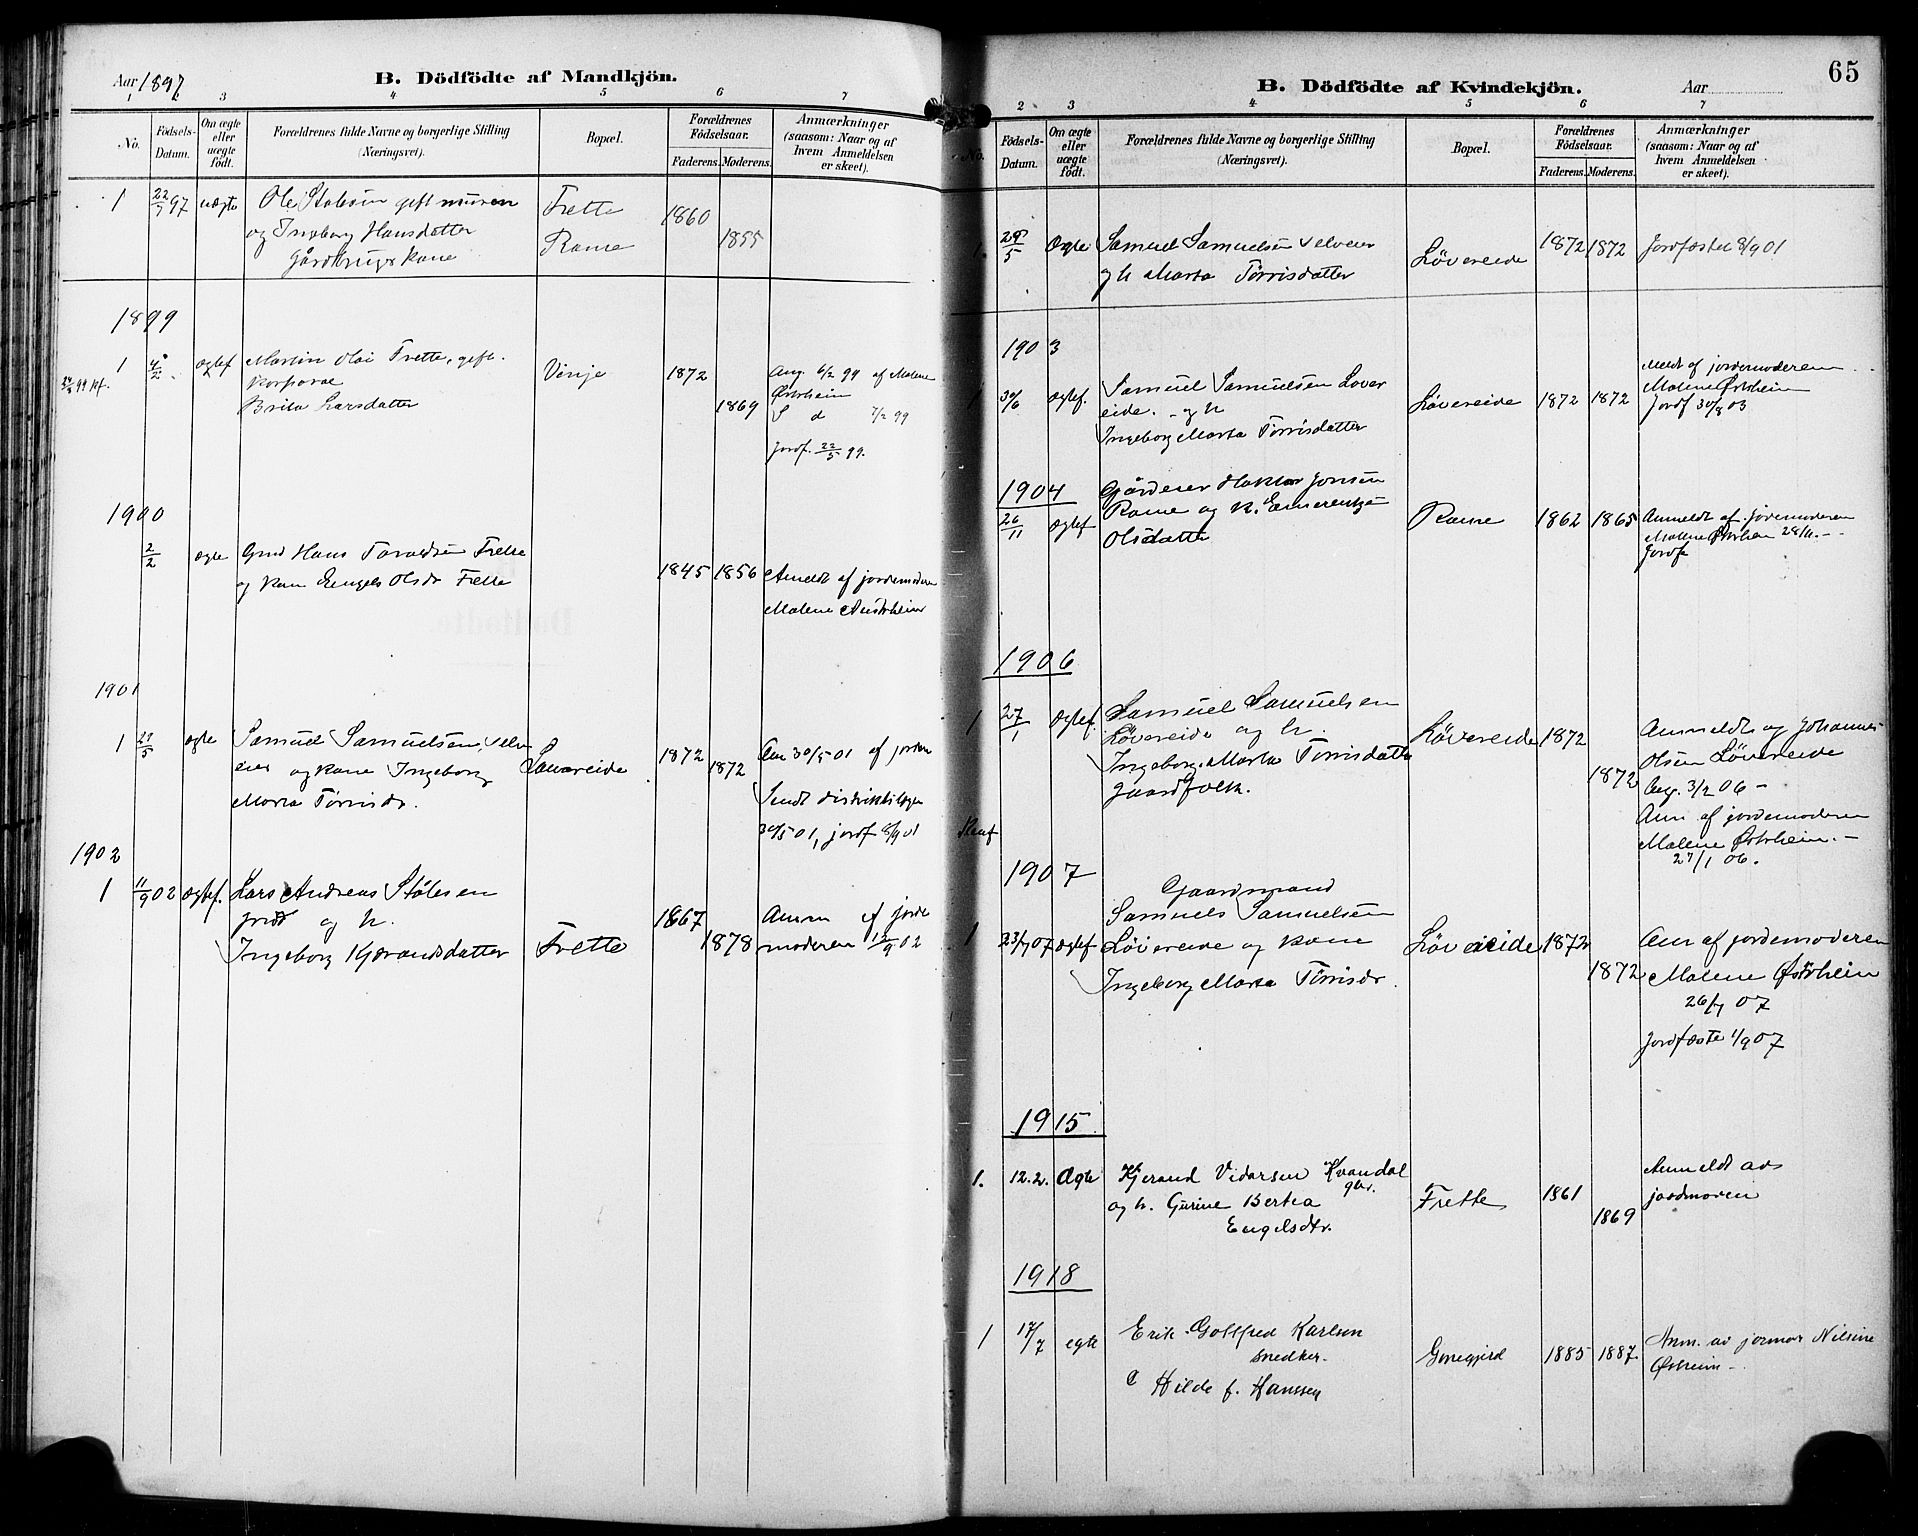 Aar 1897
B. Dödfödte af Mandkjön.
1 2 3 4 5 6 7
No.
Födsels-Datum.
Om ægte eller uægte födt.
Forældrenes fulde Navne og borgerlige Stilling (Næringsvei).
Bopæl.
Forældrenes Födselsaar.
Faderens. Moderens.
Anmærkninger (saasom: Naar og af hvem Anmeldelsen er skeet).
1 22/9 97 uægte Ole gift muren Frette 1860
og Ingeborg Hansdatter Rame 1855
Gårdbrugs kone
1899
1 4/2 ægtef Martin Olai Frette, gift. Vinje 1872 Ang. 6/2 99 af Malene
korporal Østrheim
Brita Larsdatter 1869 S d 7/2 99
Jordf. 22/5 99.
1900
2/2 ægte Gmd Hans Frette
og kone Engels Olsdr Frette 1845 1856 Anmeldt af jordemoderen
Malene Austrheim
1901
1 29/5 ægte Samuel Samuelsen, selvei 1872 Anm 30/5 01 af jordem
eier og kone Ingeborg Løvereide 1872
Marta Tørrisdr. Sendt distriktslægen
30/5 01, jordf 8/9 01
1902
1 11/9 02 ægtef. Lars Andreas Stølesen
og h. 1867 Anm af jorde
Ingeborg Kjerandsdatter Frette 1878 moderen 12/9 02
65
B. Dödfödte af Kvindekjön.
Aar
2 3 4 5 6 7
No.
Födsels-Datum.
Om ægte eller uægte födt.
Forældrenes fulde Navne og borgerlige Stilling (Næringsvei).
Bopæl.
Forældrenes Födselsaar.
Faderens. Moderens.
Anmærkninger (saasom: Naar og af hvem Anmeldelsen er skeet).
1. 29/5 Ægte Samuel Samuelsen selveier Løvereide 1872 1872 Jordfæstet 8/9 01
og h Marta Tørrisdatter
1903
1 30/6 ægtef. Samuel Samuelsen Løver Løvereide 1872 1872 Meldt af jordemoderen
eide. og h Malene Østrheim
Ingeborg Marta Tørrisdatter Jordf 30/8 03
1904
26/11 ægtef Gårdeier Haktor Jonsen
Rame og h. Emerentze Rame 1862 1865 Anmeldt af Jordemoderen
Olsdatter Malene Østrheim 28/11.
Jordf
1906
1 27/1 ægtef. Samuel Samuelsen
Løvereide og h. Løvereide 1872 Anmeldt og Johannes
Ingeborg Marta Tørrisdatter 1872 Olsen Løvereide
Gaardfolk. Ang. 3/2 06 -
Anm af jordemoderen
Malene Østrheim. -
27/1 06.
1907
Gaardmand
1 23/7 07 ægtef Samuels Samuelsen
Løvereide og kone Løvereide 1872 Anm af jordemoderen
Ingeborg Marta Tørrisdr. 1872 Malene Østrheim
26/7 07
Jordfæste 1/9 07
1915
1. 12.2. Ægte Kjerand Vidarsen Kvandal gbr. Frette 1861 Anmeldt av
og h. Gurine Bertea 1869 jordmoren
Engelsdtr.
1918
1 17/7 egte Erik Gottfred Karlsen 1885 1887 Anm. av jormor Nilsine
snedker. Østreim -
Hilde f. Hanssen